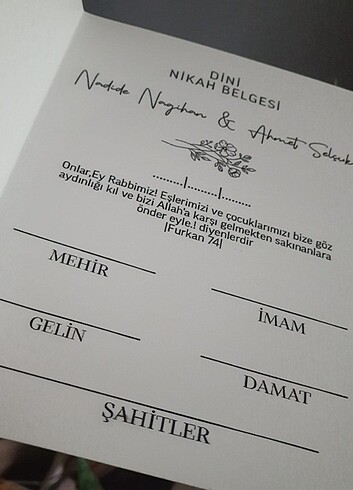 DİNİ
NİKAH BELGESİ
Nadide Nagihan & Ahmet Selsuk
.........|.........|.........
Onlar,Ey Rabbimiz! Eşlerimizi ve çocuklarımızı bize göz
aydınlığı kıl ve bizi Allah'a karşı gelmekten sakınanlara
önder eyle.! diyenlerdir
|Furkan 74|
MEHİR
İMAM
GELİN
DAMAT
ŞAHİTLER